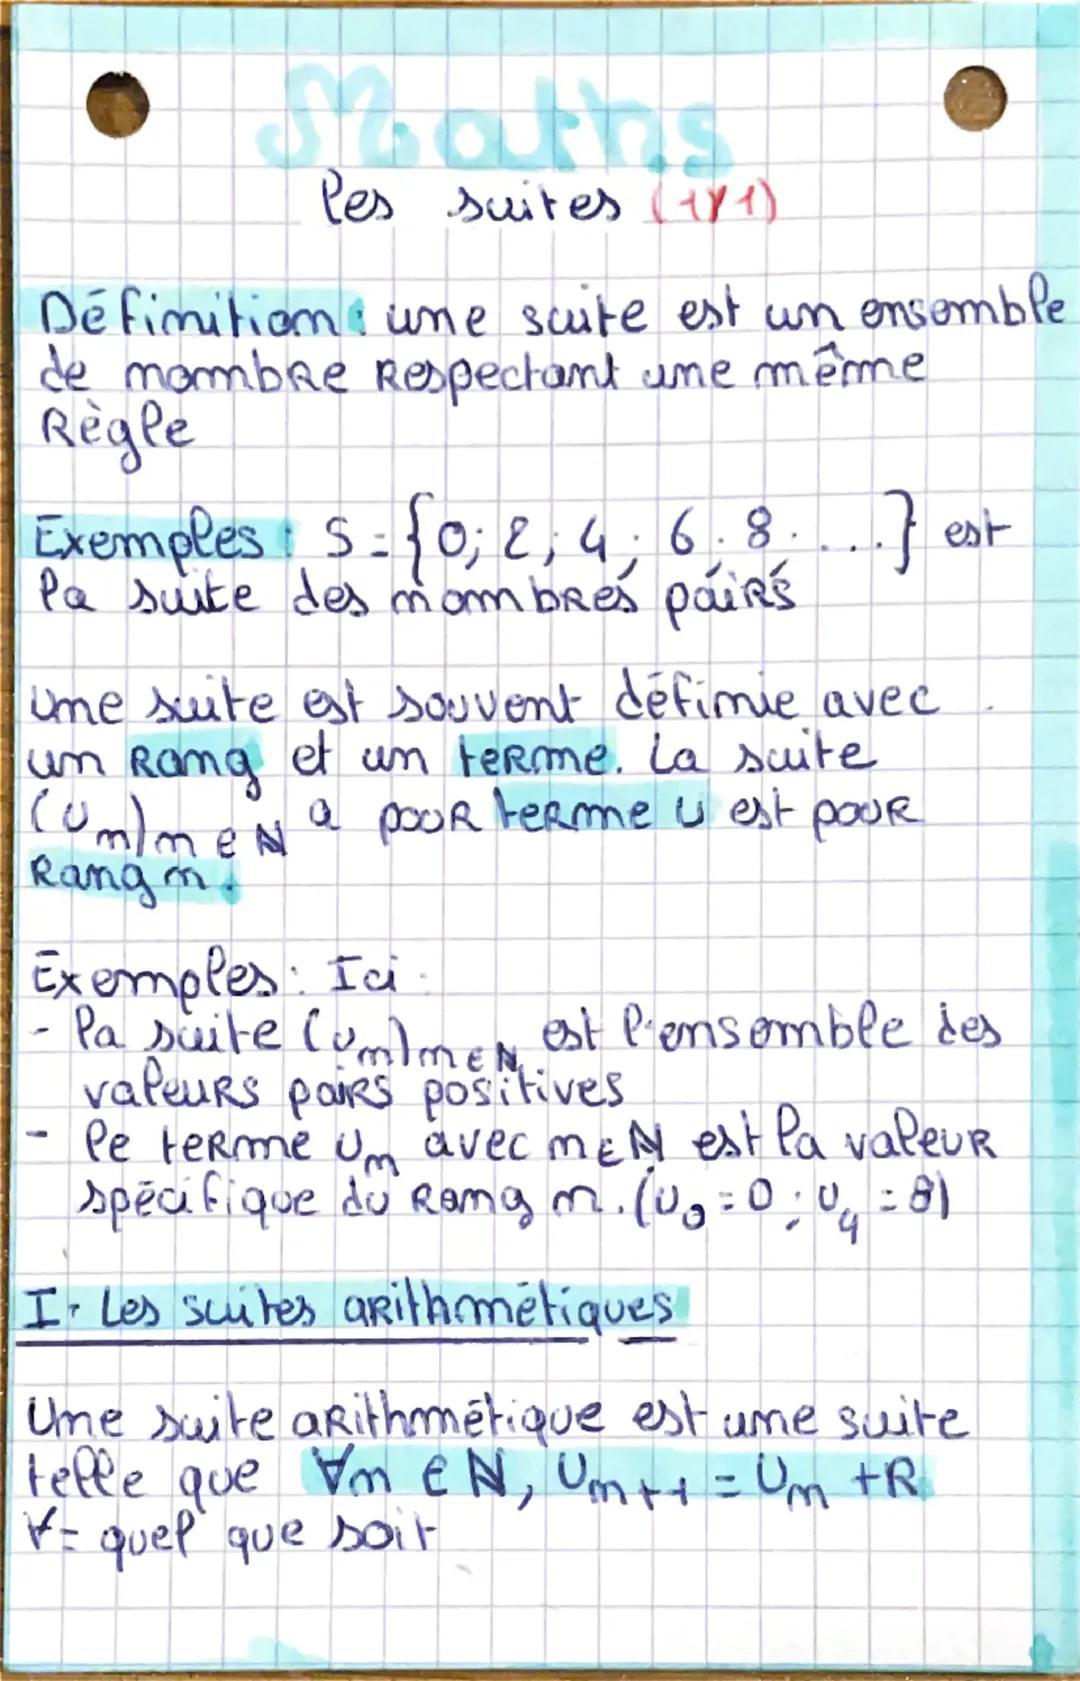 Maths
les suites (1/1)
Définition : une suite est un ensemble
de nombre respectant une même
Règle
Exemples : S = {0; 2; 4; 6; 8; ...} est
la suite des nombres pairs
une suite est souvent définie avec
un Rang et un terme. La suite
(Un)n∈N a pour terme U est pour
Rang n.
Exemples : Ici :
- la suite (Un)n∈N, est l'ensemble des
valeurs pairs positives
- le terme Un avec n∈N est la valeur
spécifique du Rang n. (U0 = 0 ; U4 = 8)
I- Les suites arithmétiques
Une suite arithmétique est une suite
telle que ∀n ∈ N, Un+1 = Un + R
∀= quel que soit